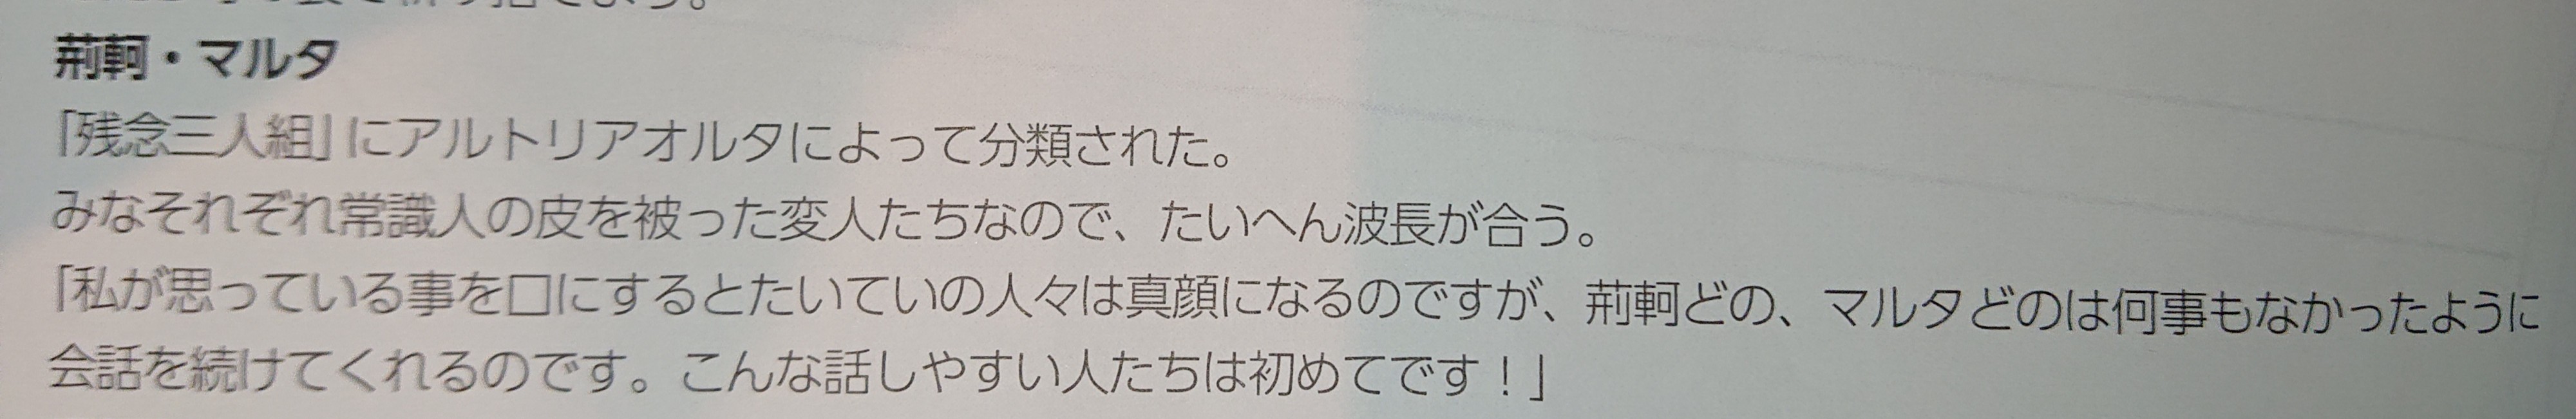 荊軻・マルタ
「残念三人組」にアルトリアオルタによって分類された。
みなそれぞれ常識人の皮を被った変人たちなので、たいへん波長が合う。
「私が思っている事を口にするとたいていの人々は真顔になるのですが、荊軻どの、マルタどのは何事もなかったように
会話を続けてくれるのです。こんな話しやすい人たちは初めてです！」